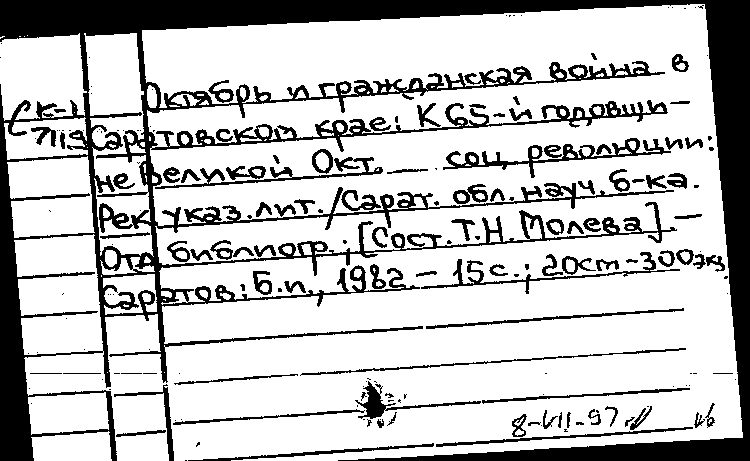 Октябрь и гражданская война в
СК-1
7119 Саратовском крае: К 65-й годовщи-
не Великой Окт. соц. революции:
Рек. указ. лит. / Сарат. обл. науч. б-ка.
Отд. библиогр.; [Сост. Т.Н. Молева]. —
Саратов: Б.и., 1982. — 15 с.; 20 см — 300 экз
8-VII-97